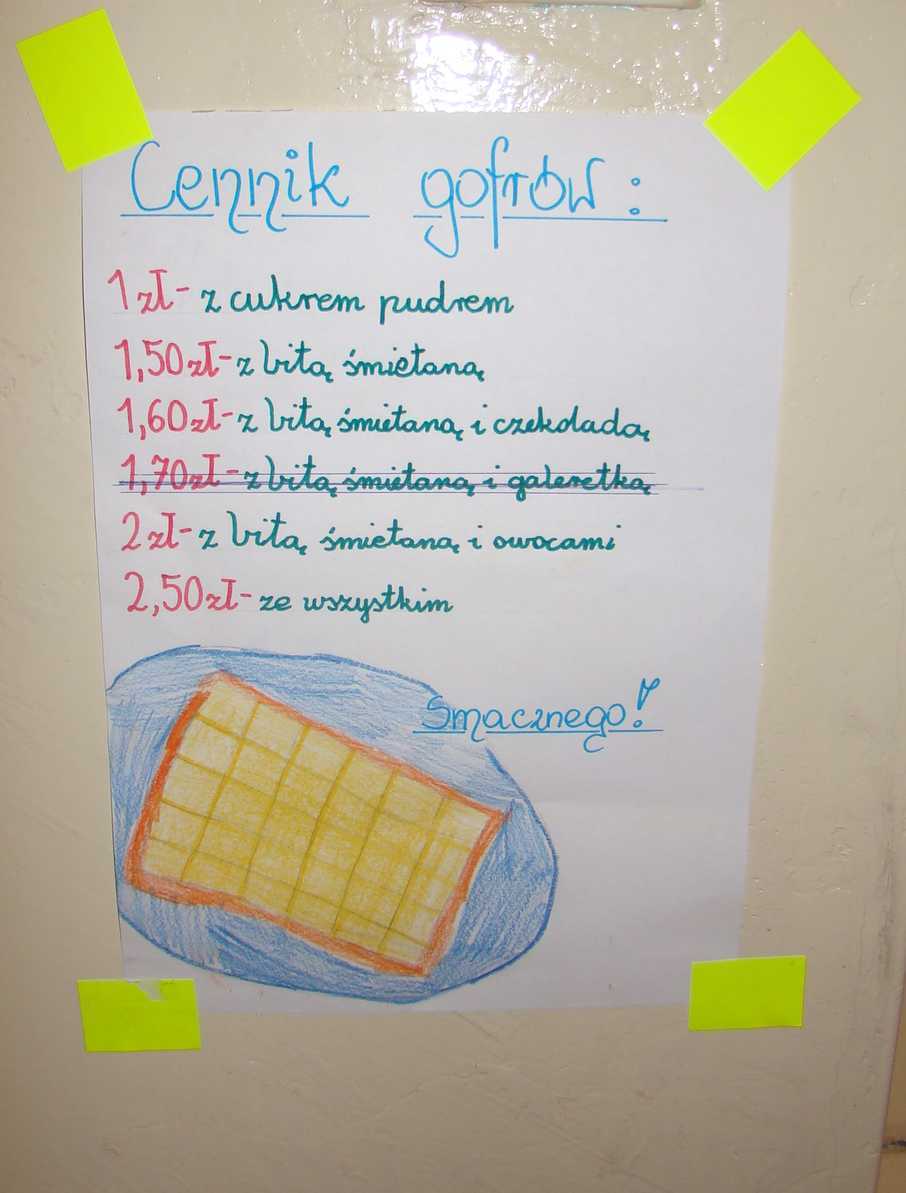 Cennik gofrów:
1 zł- z cukrem pudrem
1,50 zł- z bitą śmietaną
1,60 zł- z bitą śmietaną i czekoladą
1,70 zł- z bitą śmietaną i galeretką
2 zł- z bitą śmietaną i owocami
2,50 zł- ze wszystkim
Smacznego!